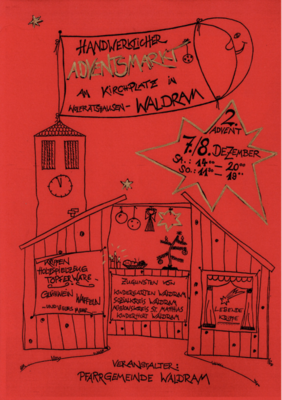 HANDWERKLICHER
ADVENTSMARKT
AM KIRCHPLATZ IN
WOLFRATSHAUSEN - WALDRAM
2.
ADVENT
7./8. DEZEMBER
SA.: 14⁰⁰ - 20⁰⁰
SO.: 11⁰⁰ - 18⁰⁰
KRIPPEN
HOLZSPIELZEUG
TÖPFERWARE
GLÜHWEIN
WAFFELN
ZUGUNSTEN VON
KINDERGARTEN WALDRAM
SOZIALKREIS WALDRAM
ST. MATTHIAS
WALDRAM
LEBENDE
KRIPPE
VERANSTALTER:
PFARRGEMEINDE WALDRAM